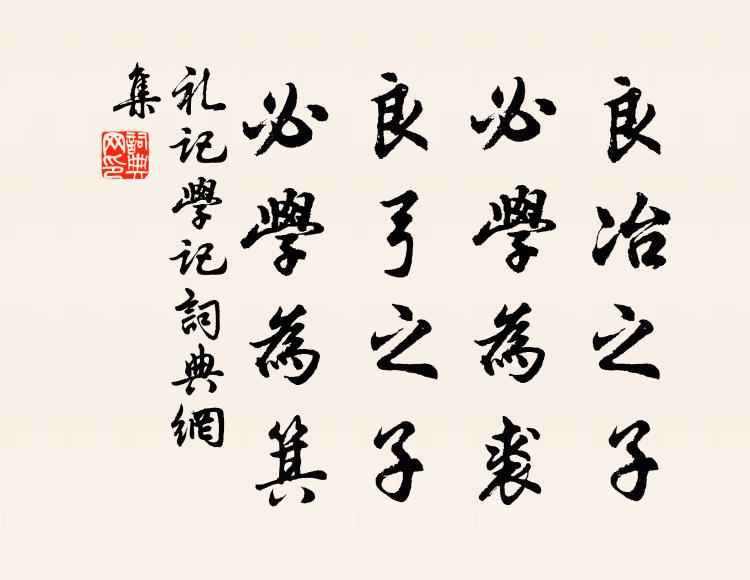 良冶之子
必學為裘
良弓之子
必學為箕
礼記學記詞典網
集
詞典
网印